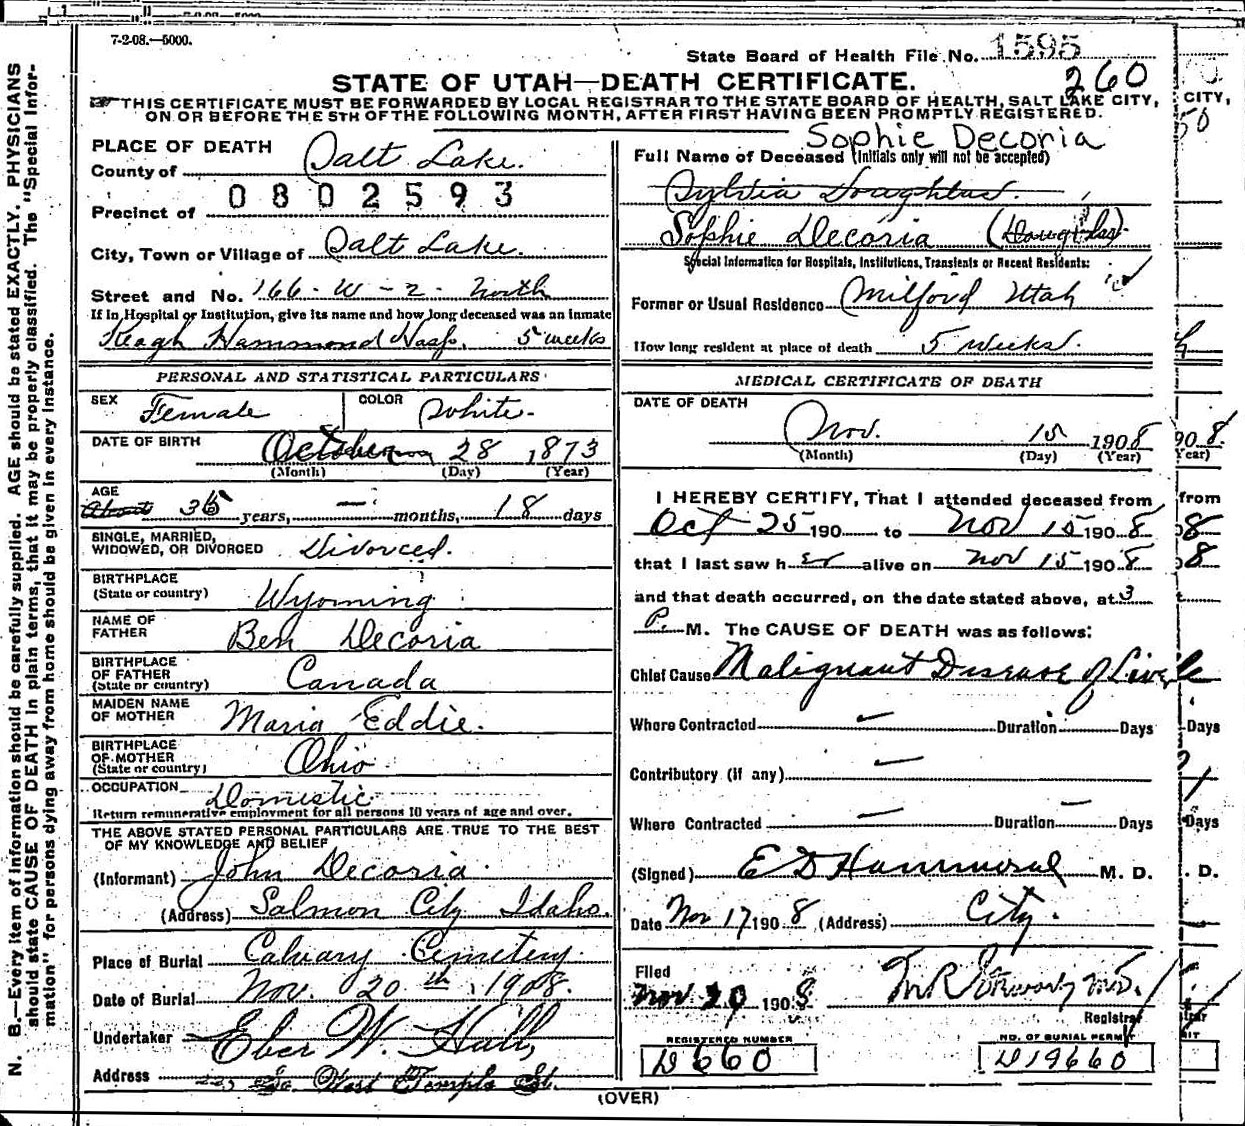 7-2-08.—5000.
State Board of Health File No. 1595
260
STATE OF UTAH—DEATH CERTIFICATE.
THIS CERTIFICATE MUST BE FORWARDED BY LOCAL REGISTRAR TO THE STATE BOARD OF HEALTH, SALT LAKE CITY,
ON OR BEFORE THE 5TH OF THE FOLLOWING MONTH, AFTER FIRST HAVING BEEN PROMPTLY REGISTERED.
PLACE OF DEATH
County of Salt Lake.
0802593
Precinct of
City, Town or Village of Salt Lake.
Street and No. 166 - W - 2 - North
If in Hospital or Institution, give its name and how long deceased was an inmate
Keogh Hammond Hosp. 5 weeks
PERSONAL AND STATISTICAL PARTICULARS
SEX Female COLOR White
DATE OF BIRTH October 28 1873
(Month) (Day) (Year)
AGE
About 35 years, — months, 18 days
SINGLE, MARRIED,
WIDOWED, OR DIVORCED Divorced.
BIRTHPLACE
(State or country) Wyoming
NAME OF
FATHER Ben Decoria
BIRTHPLACE
OF FATHER
(State or country) Canada
MAIDEN NAME
OF MOTHER Maria Eddie.
BIRTHPLACE
OF MOTHER
(State or country) Ohio
OCCUPATION Domestic
Return remunerative employment for all persons 10 years of age and over.
THE ABOVE STATED PERSONAL PARTICULARS ARE TRUE TO THE BEST
OF MY KNOWLEDGE AND BELIEF
(Informant) John Decoria
(Address) Salmon City Idaho.
Place of Burial Calvary Cemetery.
Date of Burial Nov. 20th, 1908.
Undertaker Eber W. Hall,
Address So. West Temple St.
Sophie Decoria
Full Name of Deceased (Initials only will not be accepted)
Sylvia Doughlas
Sophie Decoria (Douglas)
Special Information for Hospitals, Institutions, Transients or Recent Residents:
Former or Usual Residence Milford Utah
How long resident at place of death 5 weeks.
MEDICAL CERTIFICATE OF DEATH
DATE OF DEATH
Nov. 15 1908
(Month) (Day) (Year)
I HEREBY CERTIFY, That I attended deceased from
Oct 25 190 to Nov 15 1908
that I last saw her alive on Nov 15 1908
and that death occurred, on the date stated above, at 3
P. M. The CAUSE OF DEATH was as follows:
Chief Cause Malignant Disease of Liver
Where Contracted Duration Days
Contributory (if any)
Where Contracted — Duration — Days
(Signed) E D Hammond M. D.
Date Nov 17 1908 (Address) City.
Filed
Nov 20 1908
Registrar
REGISTERED NUMBER
D 660
NO. OF BURIAL PERMIT
D 19660
(OVER)
N. B.—Every item of information should be carefully supplied. AGE should be stated EXACTLY. PHYSICIANS
should state CAUSE OF DEATH in plain terms, that it may be properly classified. The "Special Infor-
mation" for persons dying away from home should be given in every instance.
CITY,
50
h
908.
Year)
from
08
08
Days
Days
. D.